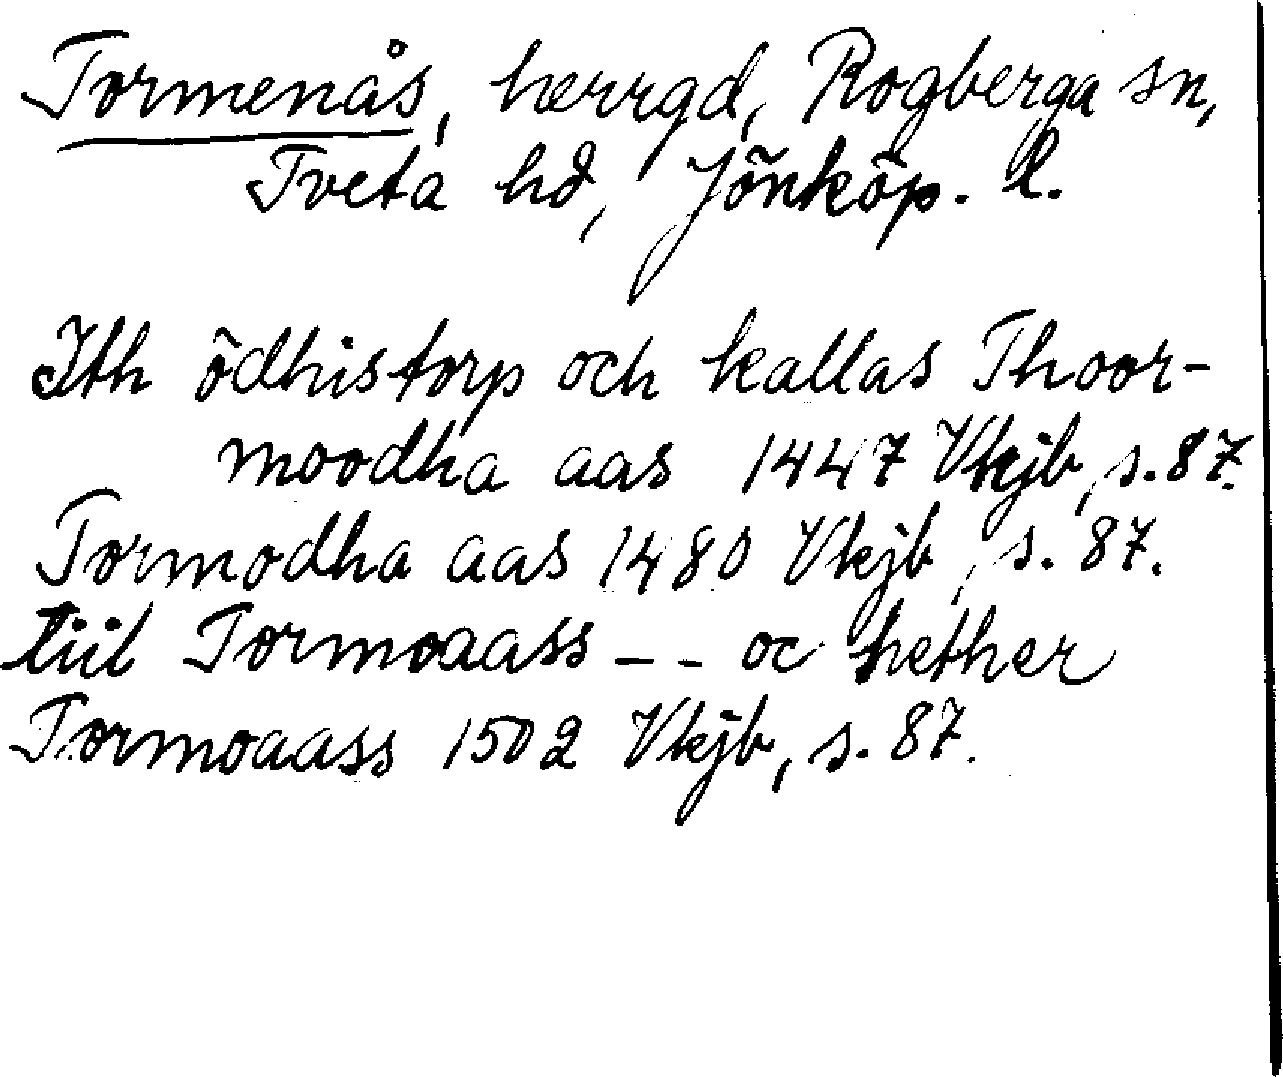 Tormenås, herrgd, Rogberga sn,
Tveta hd, Jönköp. l.
Ith ödhistorp och kallas Thoor-
moodha aas 1447 Vkjb, s. 87.
Tormodha aas 1480 Vkjb, s. 87.
tiil Tormoaass - - oc hether
Tormoaass 1502 Vkjb, s. 87.